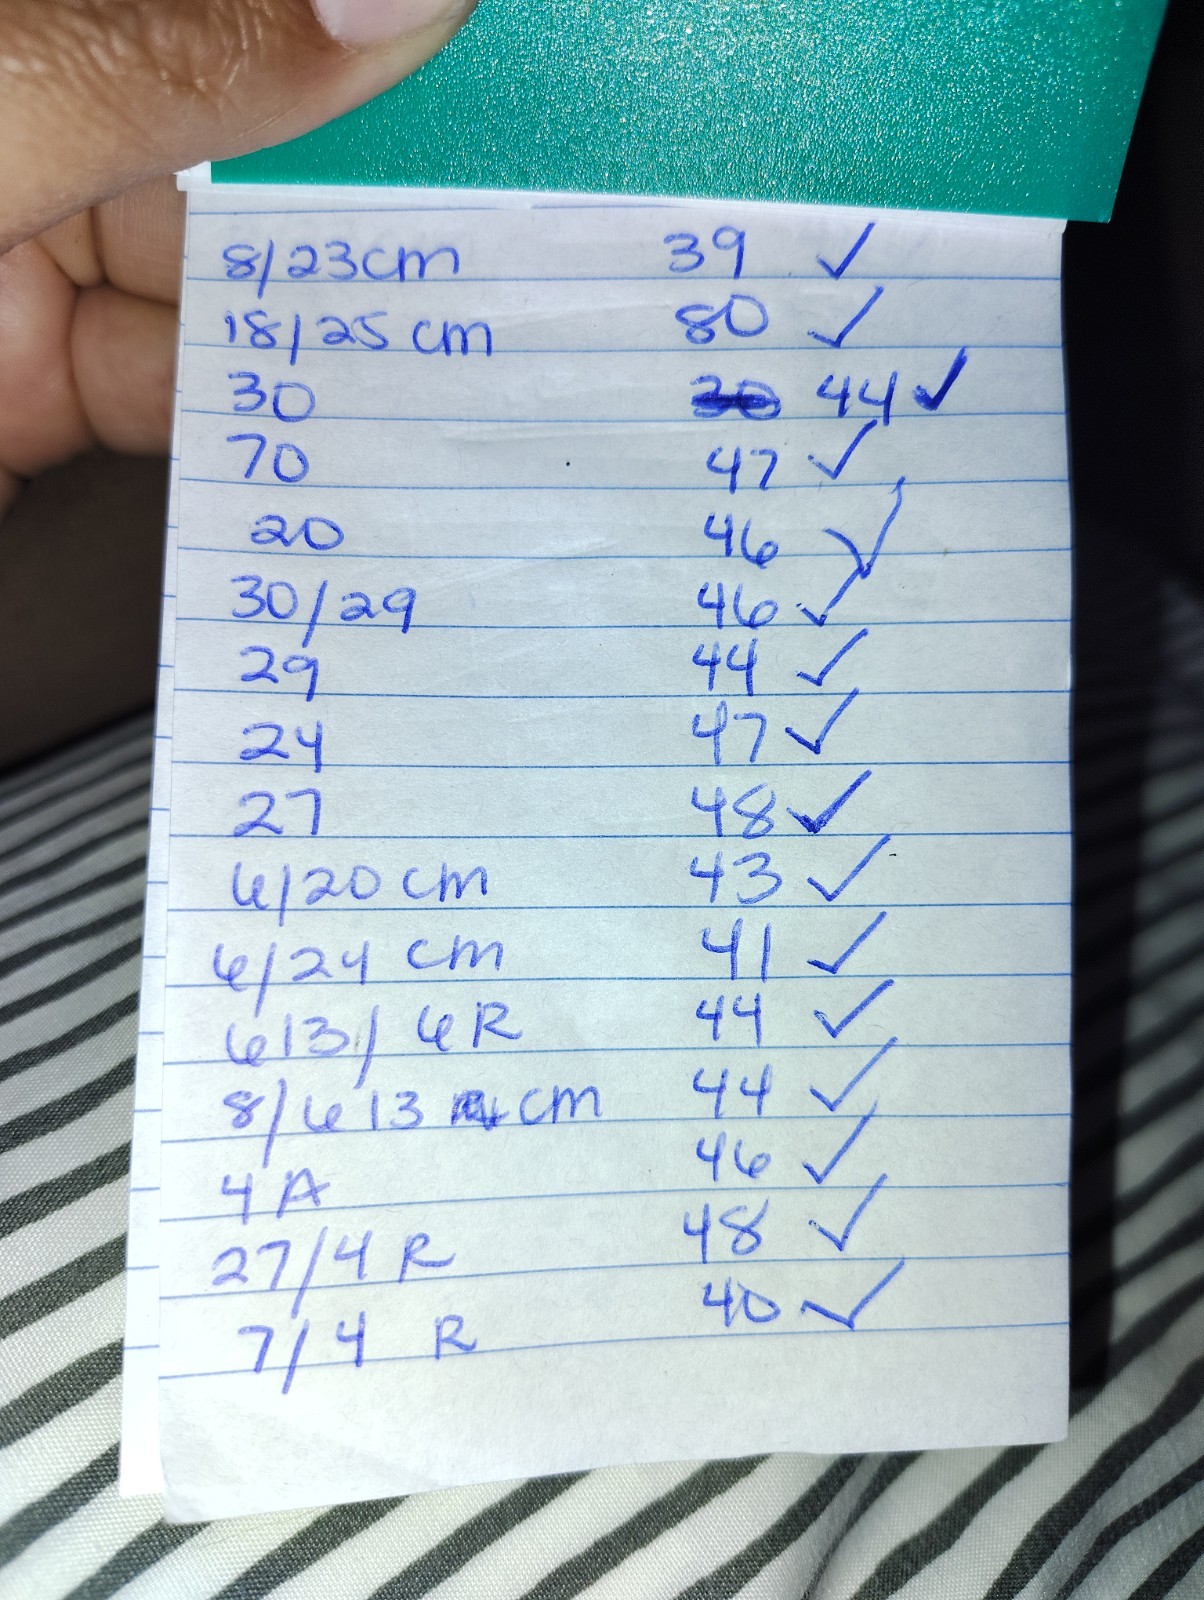 8/23cm 39 ✓
18/25 cm 80 ✓
30 44 ✓
70 47 ✓
20 46 ✓
30/29 46 ✓
29 44 ✓
24 47 ✓
27 48 ✓
6/20 cm 43 ✓
6/24 cm 41 ✓
613/ 6R 44 ✓
8/613 cm 44 ✓
4A 46 ✓
27/4 R 48 ✓
7/4 R 40 ✓